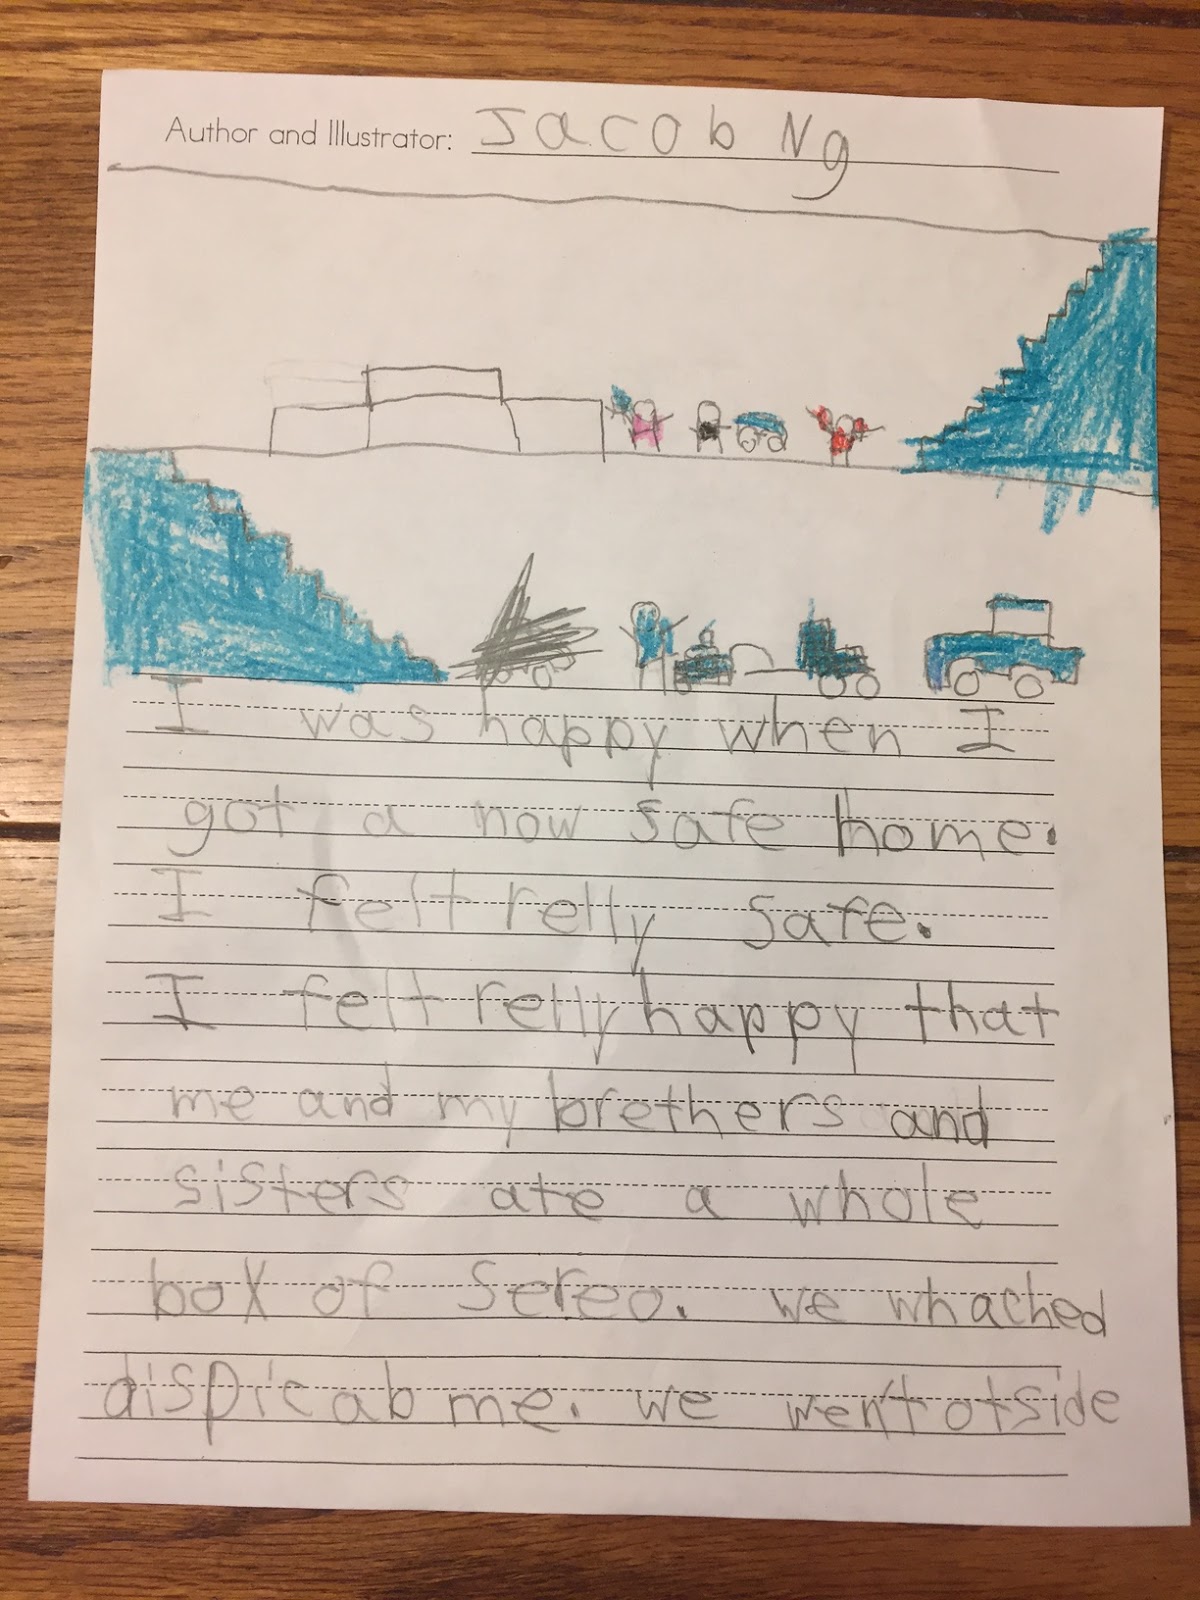 Author and Illustrator: Jacob Ng
I was happy when I
got a now safe home.
I felt relly safe.
I felt relly happy that
me and my brethers and
sisters ate a whole
box of Sereo. we whached
dispicab me. we went otside